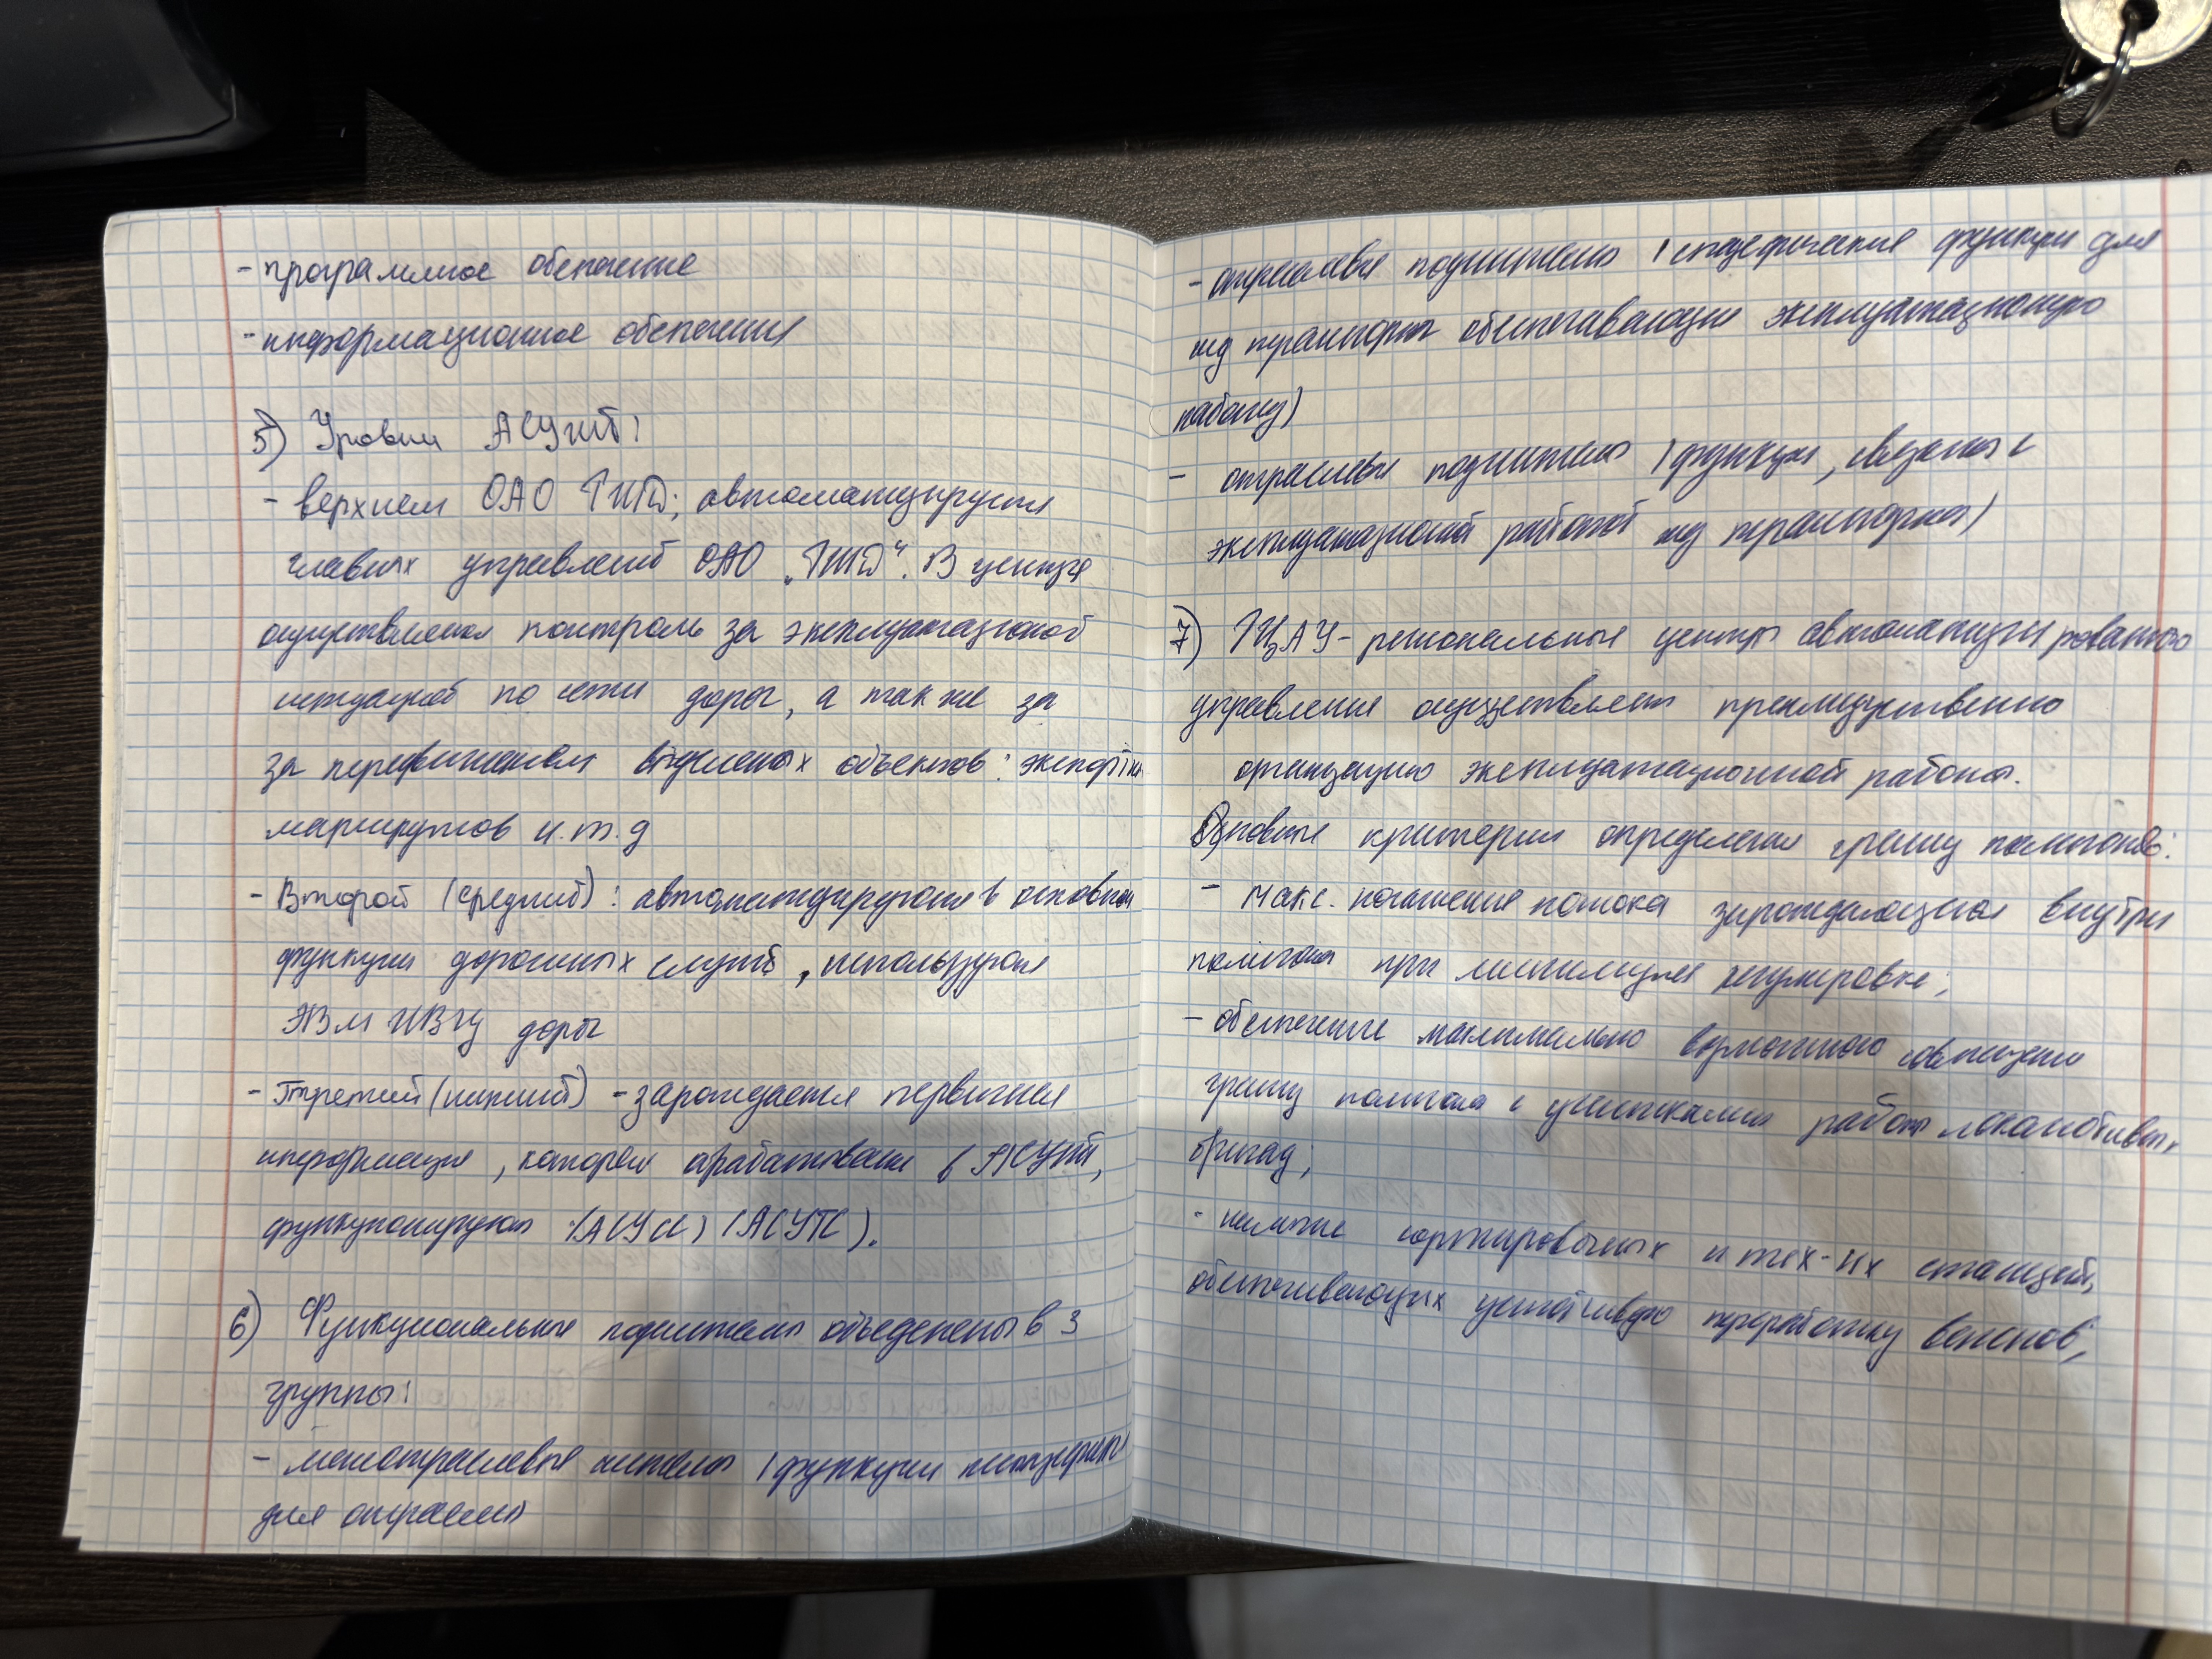 - программное обепечение
- информационное обепечения
5) Уровни АСУЖТ:
- верхнем ОАО РЖД; автоматизируется
главных управлений ОАО „РЖД“. В центре
осуществляется контроль за эксплуатационной
ситуацией по сети дорог, а так же за
за передвижением выделеных объектов: экспортн
маршрутов и.т.д
- Второй (средний): автоматизируются в основном
функции дорожных служб, используются
ЭВМ ИВЦ дорог
- Третий (нижний) - зарождается первичная
информация, которая в АСУЖТ,
функционируют (АСУСС) (АСУТС).
6) Функциональные подсистемы объеденены в 3
группы:
- межотраслевые системы (функции
для отрасли
- отраслевые подсистемы (специфические функции для
жд транспорта обеспечивающие эксплуатационную
работу)
- отраслевые подсистемы (функции, связаны с
эксплуатационной работой жд транспорта)
7) РЦАУ - региональные центры автоматизированного
управления осуществляет преимущественно
организацию эксплуатационной работы.
Основные критерии определения границ полигонов:
- Макс. погашение потока зарождающегося внутри
полигона при регулировке;
- обеспечение максимально возможного совпадения
границ полигона с участками работы локомотивных
бригад;
- наличие сортировочных и тех-их станций,
обеспечивающих устойчивую переработку вагонов;